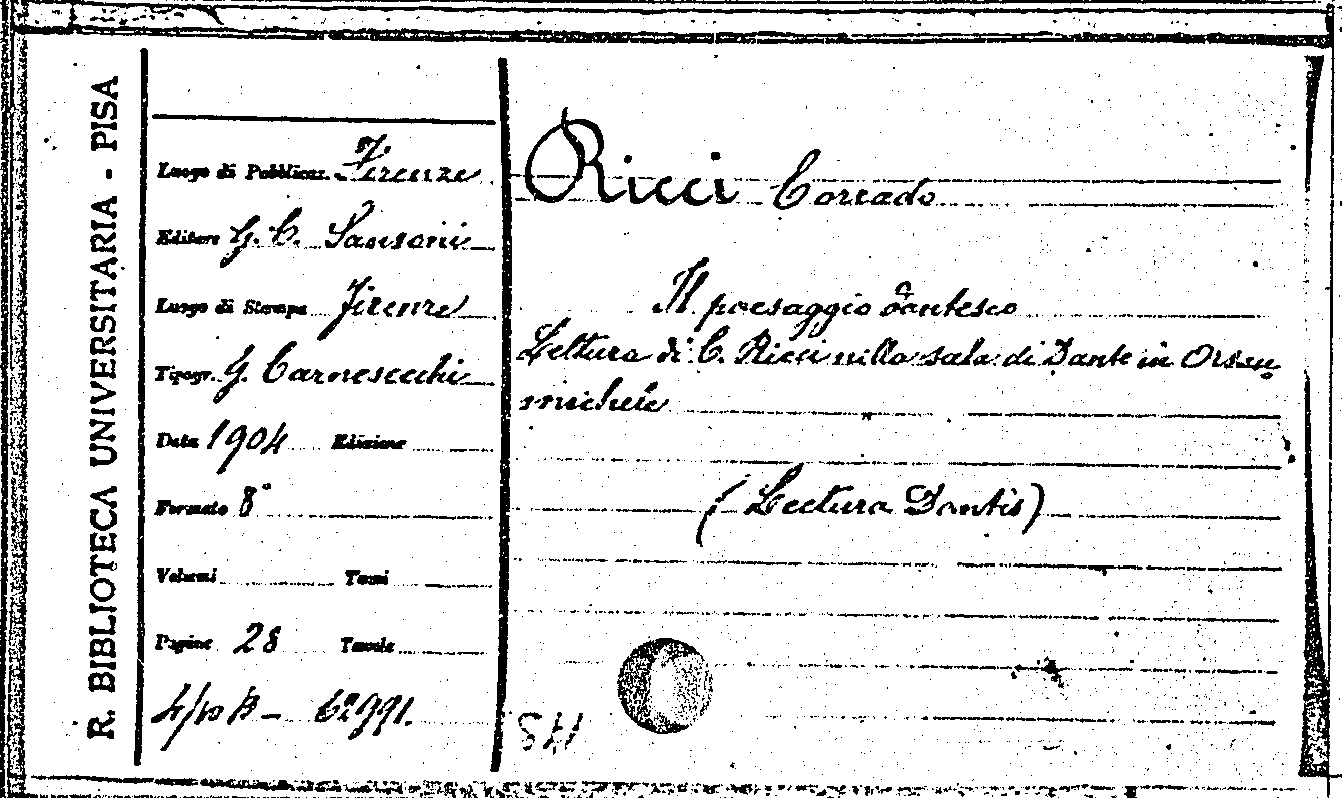 R. BIBLIOTECA UNIVERSITARIA - PISA
Luogo di Pubblicaz. Firenze
Editore G. C. Sansoni
Luogo di Stampa Firenze
Tipogr. G. Carnesecchi
Data 1904 Edizione
Formato 8°
Volumi Tomi
Pagine 28 Tavole
62991.
Ricci Corrado
Il paesaggio dantesco
Lettura di C. Ricci nella sala di Dante in Orsan
michele
(Lectura Dantis)